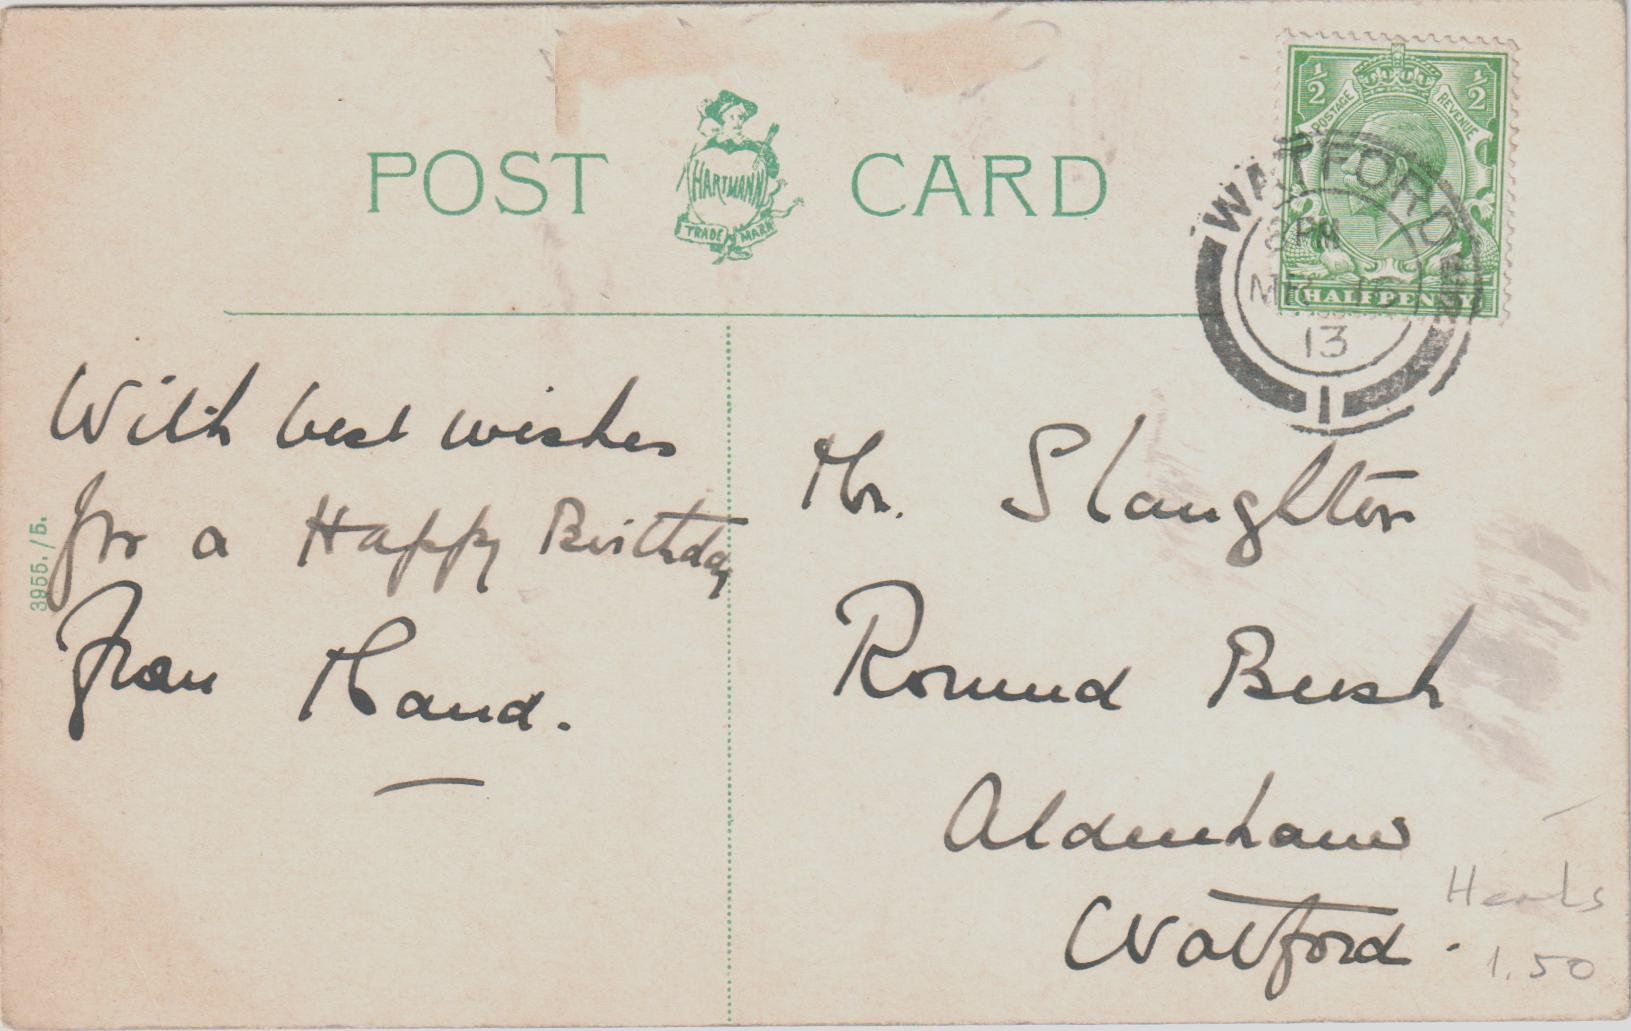 POST CARD
HARTMANN
TRADE MARK
1/2 1/2
POSTAGE REVENUE
HALFPENNY
WATFORD
PM
MR 16
13
1
With best wishes
for a Happy Birthday
from Maud.
3955./5.
Mr. Slaughter
Round Bush
Aldenham
Watford.
Herts
1.50